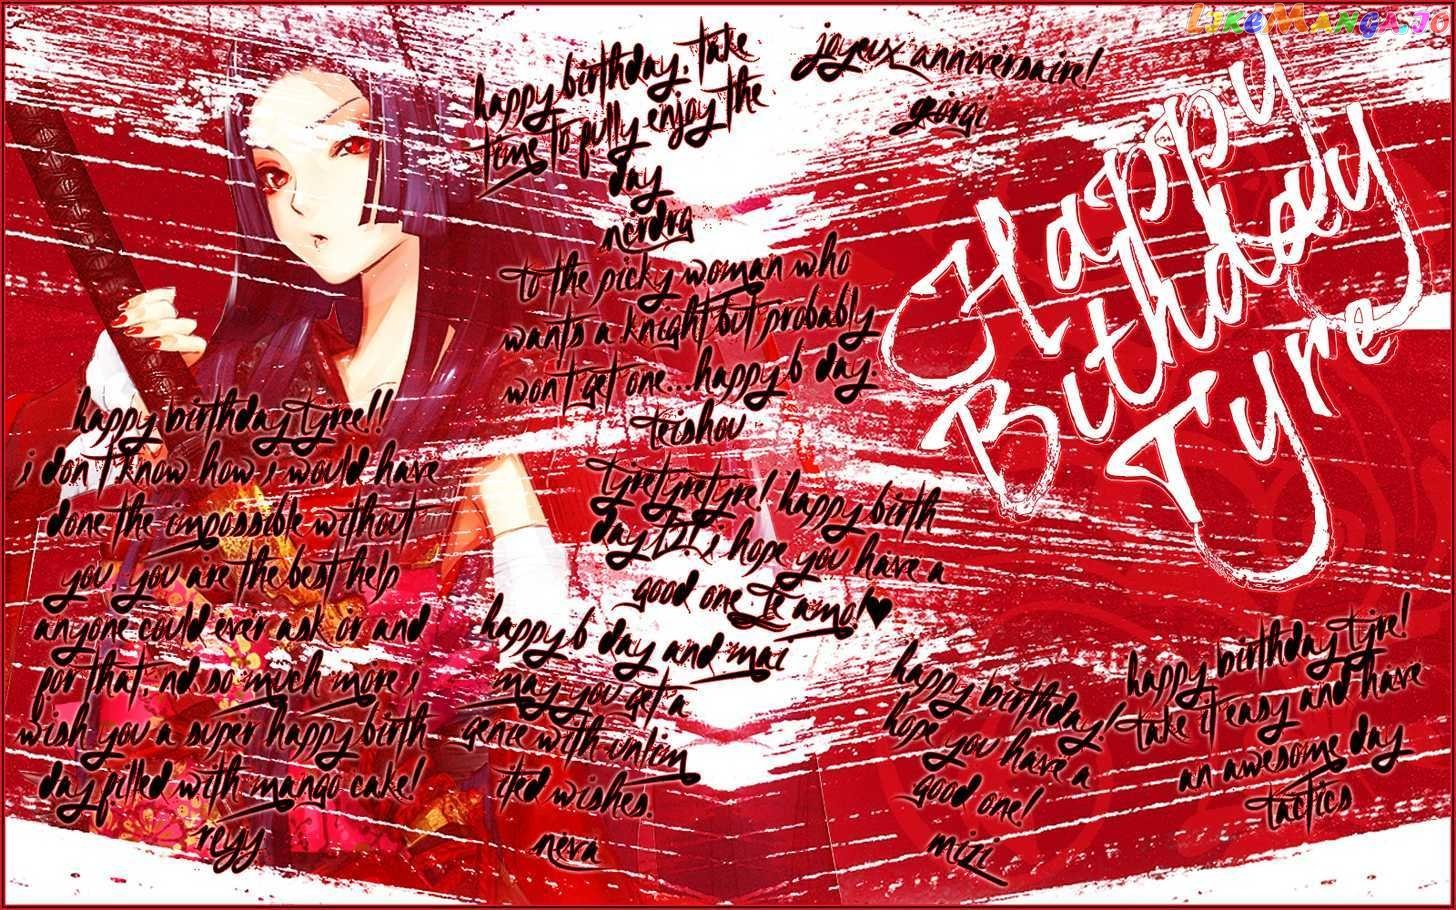 LIKEMANGA.IO
Happy
Bithday
Tyre
happy birthday. take
time to fully enjoy the
day
nerdra
joyeux anniversaire!
georgi
to the picky woman who
wants a knight but probably
won't get one...happy b day.
teishou
tyretyretyre! happy birth
day i hope you have a
good one te amo!♥
happy birthday tyree!!
i don't know how i would have
done the impossible without
you. you are the best help
anyone could ever ask or and
for that, nd so much more i
wish you a super happy birth
day filled with mango cake!
reyy
happy b day and mai
may you get a
genie with unlim
ited wishes.
neva
happy birthday!
hope you have a
good one!
mizi
happy birthday tyre!
take it easy and have
an awesome day
tactics